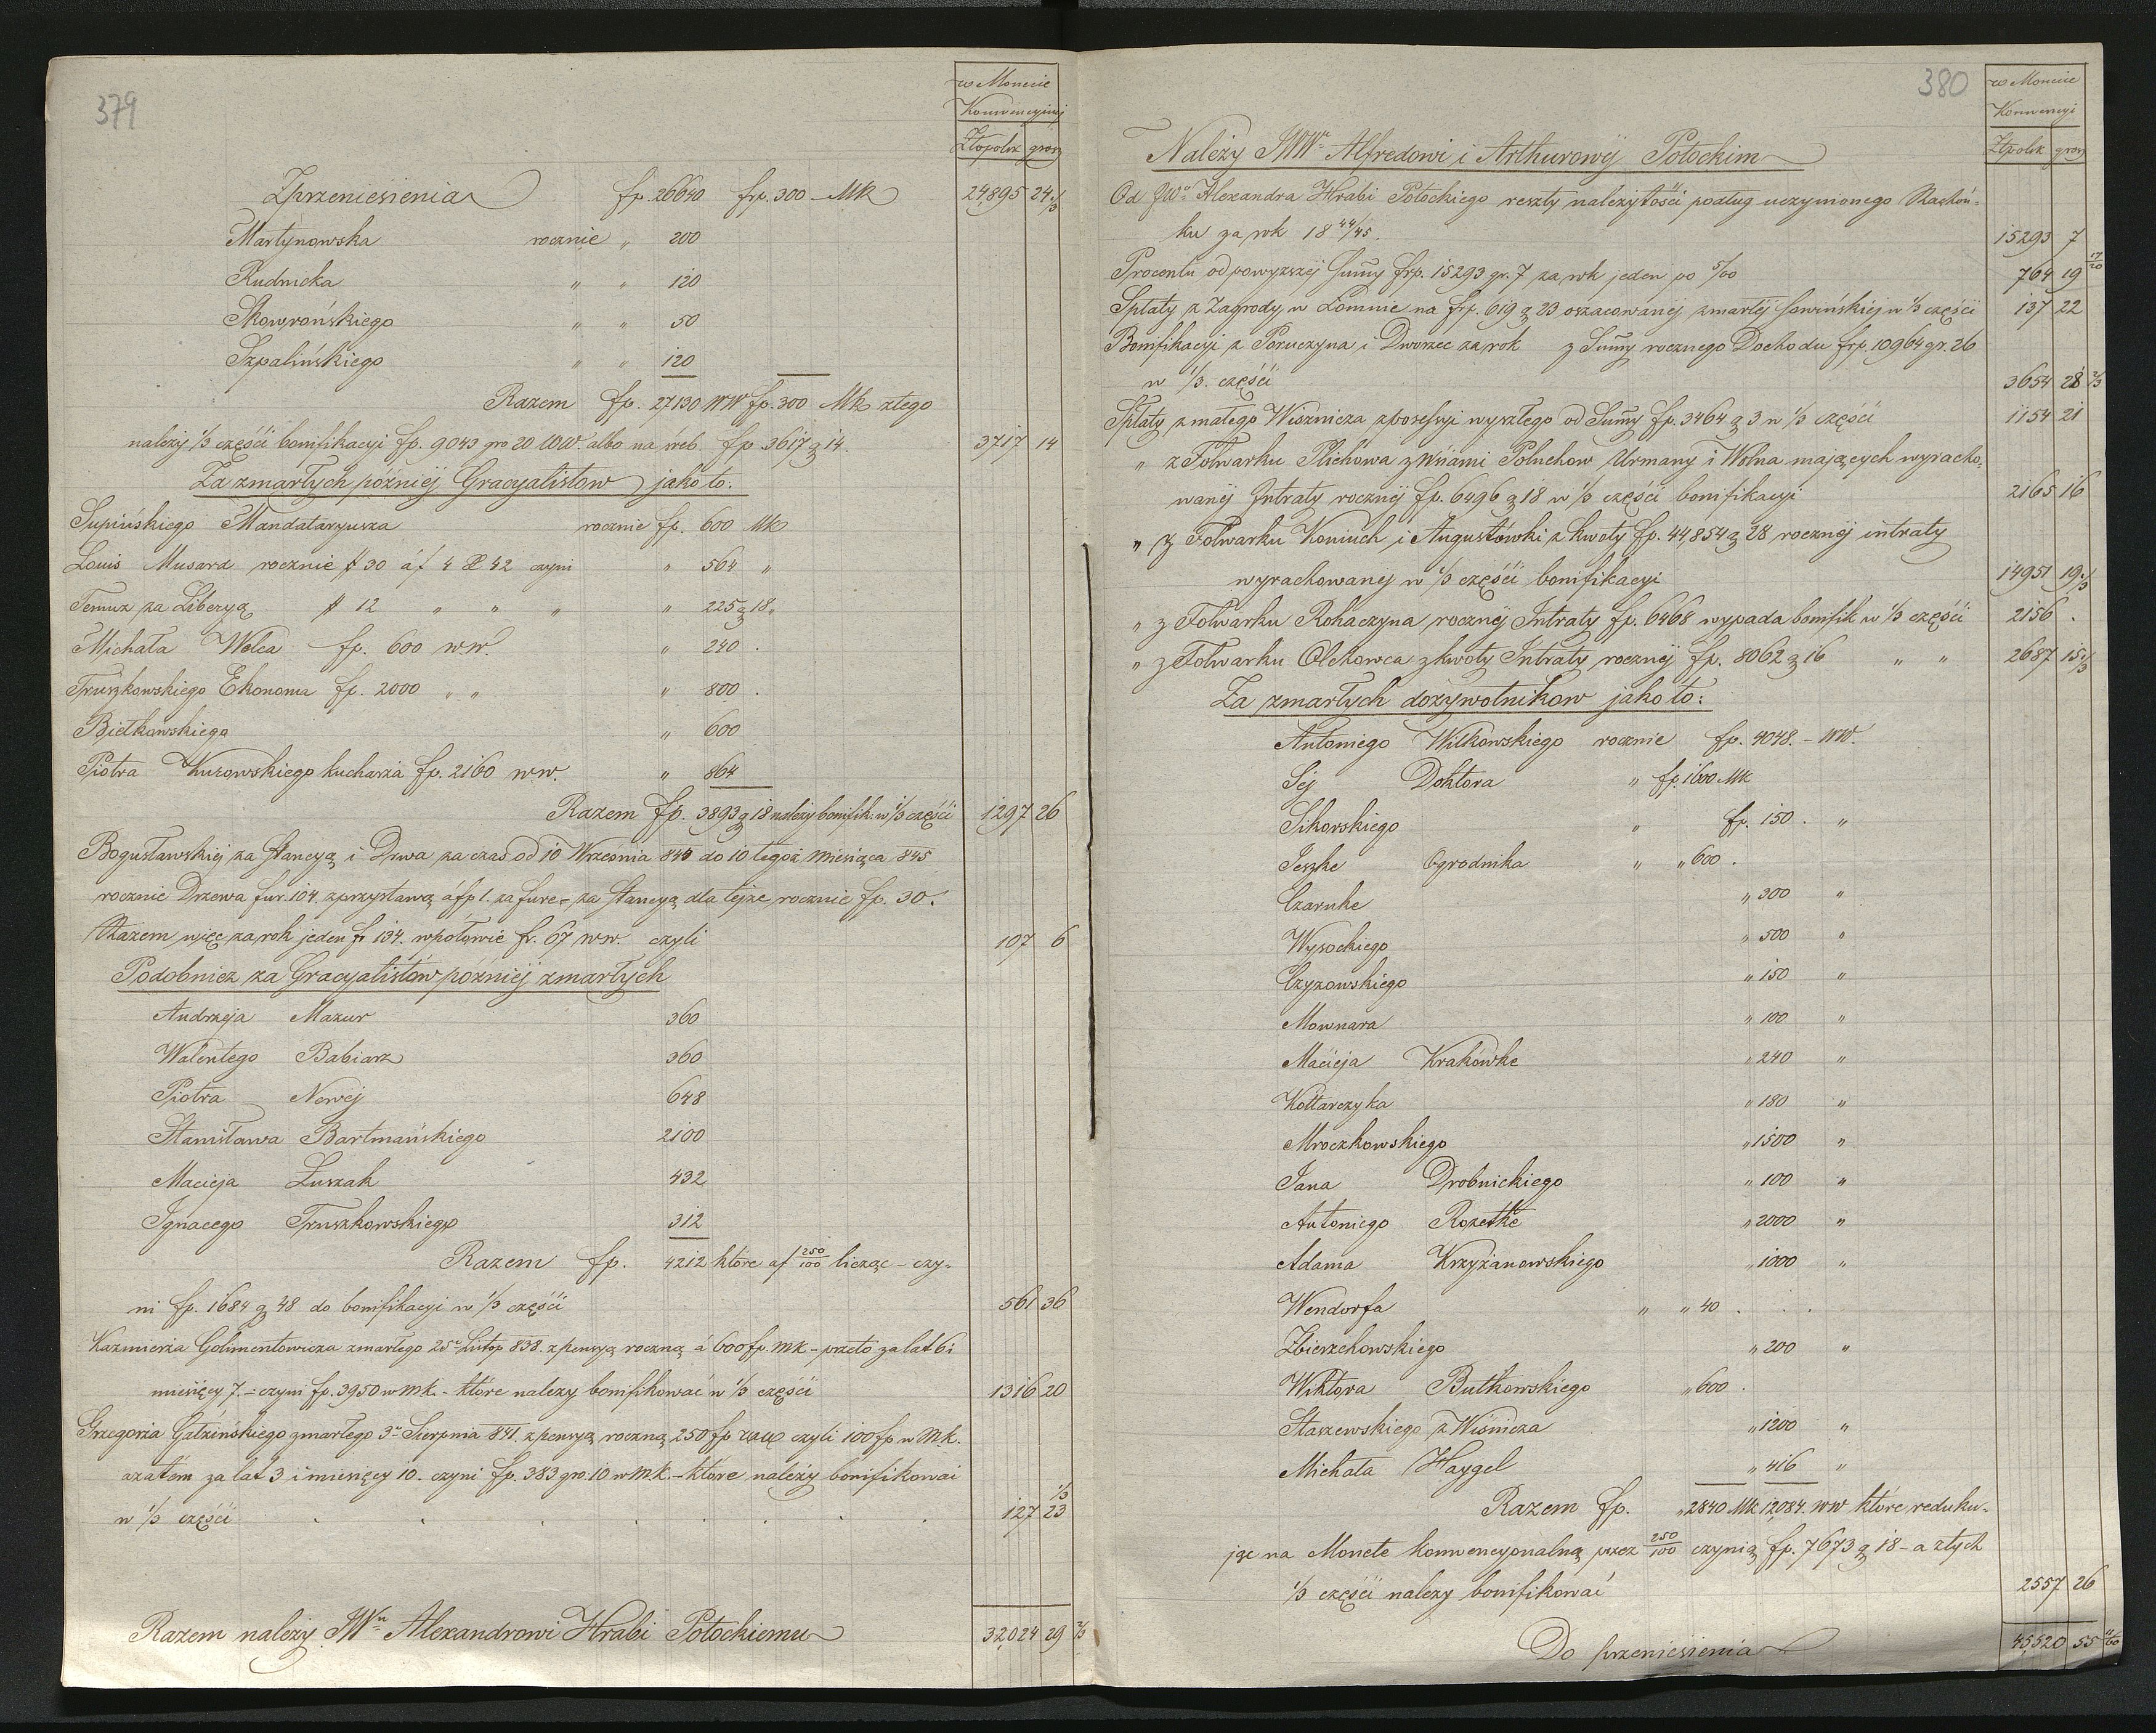 379
w Monecie
Konwencyjnej
Złpolsk grosz
Zprzeniesienia fp. 26640 frp. 300 - MK 24,895 24 1/3
Martynowska rocznie " 200
Rudnicka " " 120
Skowrońskiego " " 50
Szpalińskiego " " 120
Razem fp. 27,130 WW fp. 300 Mk złego
należy 1/3 części bonifikacyi fp. 9043 gro 20 WW. albo na śreb. fp 3617 g 14. 3717 14
Za zmarłych później Gracyalistow jako to:
Supińskiego Mandataryusza rocznie fp. 600 Mk
Louis Musard rocznie # 30 áf 4 X 42 czyni " 564 "
Temuz za Liberyą # 12 " " " " 225 g 18 "
Michała Wolca fp. 600 w.w. " 240 .
Truszkowskiego Ekonoma fp. 2000 " " " 800 .
Bielkowskiego " 600
Piotra Kurowskiego kucharza fp. 2160 w.w. " 864
Razem fp. 3893 g 18 należy bonifik: w 1/3 części 1297 26
Bogusławskiej za stancyą i Drwa za czas od 10 Września 844 do 10 tegoż miesiąca 845
rocznie Drzewa fur. 104. zprzystawą áfp 1. za fure - za stancyą dla tejże rocznie fp. 30.
Razem więc za rok jeden fr 134. wpołowie fr. 67 w.w. czyli 107 6
Podobniez za Gracyalistów później zmarłych
Andrzeja Mazur 360
Walentego Babiarz 360
Piotra Nowej 648
Stanisława Bartmańskiego 2100
Macieja Łuszak 432
Ignacego Truszkowskiego 312
Razem fp. 4212 które af 250/100 licząc - czy-
ni fp. 1684 g 48 do bonifikacyi w 1/3 części 561 36
Kazmierza Golimentowicza zmarłego 25o Listop 838. z pensyą roczną á 600 fp. mk - przeto za lat 6 i
miesięcy 7. - czyni fp. 3950 w mk. - które nalezy bonifikować w 1/3 części 1316 20
Grzegorza Gałzińskiego zmarłego 3o Sierpnia 841. z pensyą roczną 250 fp ww czyli 100 fp w M.K.
azatém za lat 3 i miesięcy 10. czyni fp. 383 gro. 10 w mk. - które należy bonifikowai
w 1/3 części 127 23 1/3
Razem należy JWu Alexandrowi Hrabi Potockiemu 32,024 29 2/3
380
w Monecie
Konwencyi
Złpolsk grosz
Należy JWWu Alfredowi i Arthurowij Potockim
Od JWo Alexandra Hrabi Potockiego reszty należytości podług uczynionego Rachón-
ku za rok 18 44/45. 15293 7
Procentu od powyzszej Sumy frp. 15293 gr. 7 za rok jeden po 5/00 764 19 17/20
Spłaty z Zagrody w Łomnie na frp. 619 g 23 oszacowanej zmarłej Sowińskiej w 1/3 części 137 22
Bonifikacyi z Poruczyna i Dworzec za rok z Sumy rocznego Dochodu frp. 10964 gr. 26
w 1/3. części 3654 28 2/3
Spłaty z małego Wisznicza zposesyi wyszłego od Sumy fp. 3464 g 3 w 1/3 części 1154 21
" z Folwarku Plichowa z Wsiami Poluchow Urmany i Wolna mających wyracho-
wanej Intraty rocznej fp. 6496 g 18 w 1/3 części bonifikacyi 2165 16
" z Folwarku Koniuch i Augustówki z kwoty fp. 44,854 g 28 rocznej intraty
wyrachowanej w 1/3 części bonifikacyi 14951 19 1/3
" z Folwarku Rohaczyna rocznej Intraty fp. 6468 wypada bonifik w 1/3 części 2156 .
" z Folwarku Olchowca z kwoty Intraty rocznej fp. 8062 g 16 " " 2687 15 1/3
Za zmarłych dożywotnikow jako to:
Antoniego Wilkowskiego rocznie fp. 4048. - WW.
Sej Doktora " fp. 1600 Mk
Sikorskiego " fp. 150 . "
Jeszke Ogrodnika " " 600 .
Czaruke " 300 "
Wysockiego " 500 "
Czyzowskiego " 150 "
Mownara " 100 "
Macieja Krakówke " 240 "
Kottarczyka " 180 "
Mroczkowskiego " 1500 "
Jana Drobnickiego " 100 "
Antoniego Rozetke " 2000 "
Adama Krzyżanowskiego " 1000 "
Wendorfa " " 40 . . .
Zbierzchowskiego " 200 "
Wiktora Butkowskiego " 600 .
Staszewskiego z Wiśnicza " 1200 "
Michała Haygel " 416 "
Razem fp. " 2840 Mk 12,084. WW które reduku-
jąc na Monetę konwencyonalną przez 250/100 czynią fp. 7673 g 18 - a złych
1/3 części nalezy bonifikować 2557 26
Do przeniesienia 45,520 55 11/60